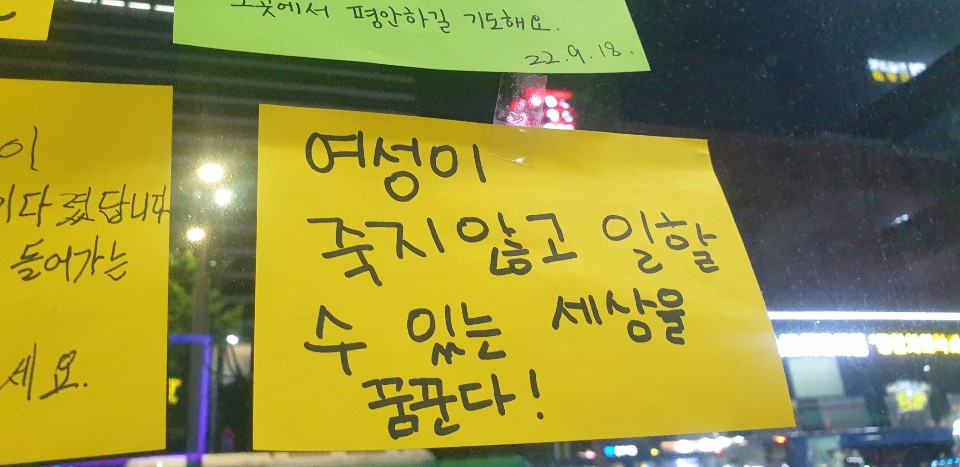 그곳에서 평안하길 기도해요.
22.9.18.
이
이다렸답니다
돌어가는
세요.
여성이
죽지않고 일할
수 있는 세상을
꿈꾼다!